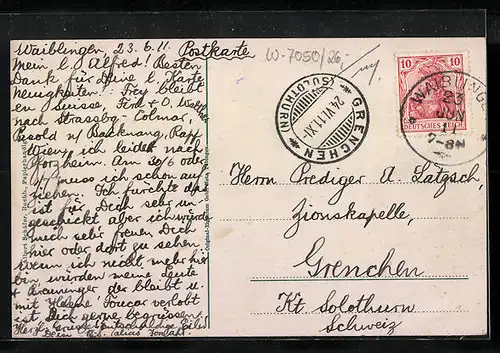 Waiblingen, 23.6.11. Postkarte
Mein l. Alfred! Besten
Dank für Deine l. Karte
neuigkeiten! Frey bleibt
en Suisse,
nach Strassbg. Colmar,
n. Backnang, Rapp
Wien, ich leider nach
Pforzheim. Am 30/6 oder
1/7 muss ich schon auf
ziehen. Ich fürchte das
ist für Dich sehr un
geschickt aber ich würde
mich sehr freuen Dich
hier oder dort zu sehen.
Wenn ich nicht mehr hier
bin würden meine Leute
der bleibt u.
mit Helene verlobt
ist Dich gerne begrüssen.
Herzl. Gruss Entschuldige Eile!
Dein
W-7050/26,-
GRENCHEN
(SOLOTHURN)
24.VI.11.XI
10 10
DEUTSCHES REICH
WAIBLINGEN
23
JUN
Herrn Prediger A. Latzsch,
Zionskapelle,
Grenchen
Kt. Solothurn
Schweiz